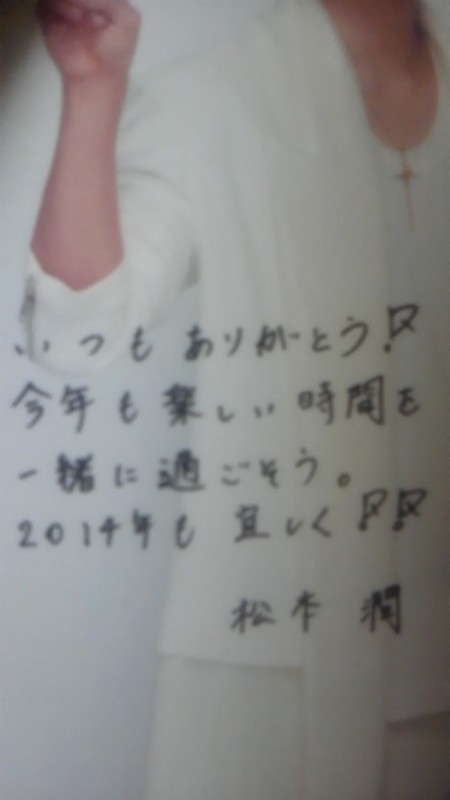 いつもありがとう!
今年も楽しい時間を
一緒に過ごそう。
2014年も宜しく!!
松本 潤